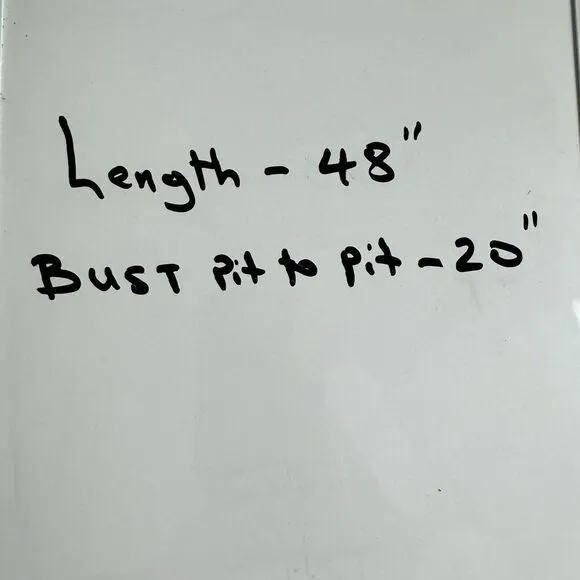 Length - 48"
BUST pit to pit - 20"